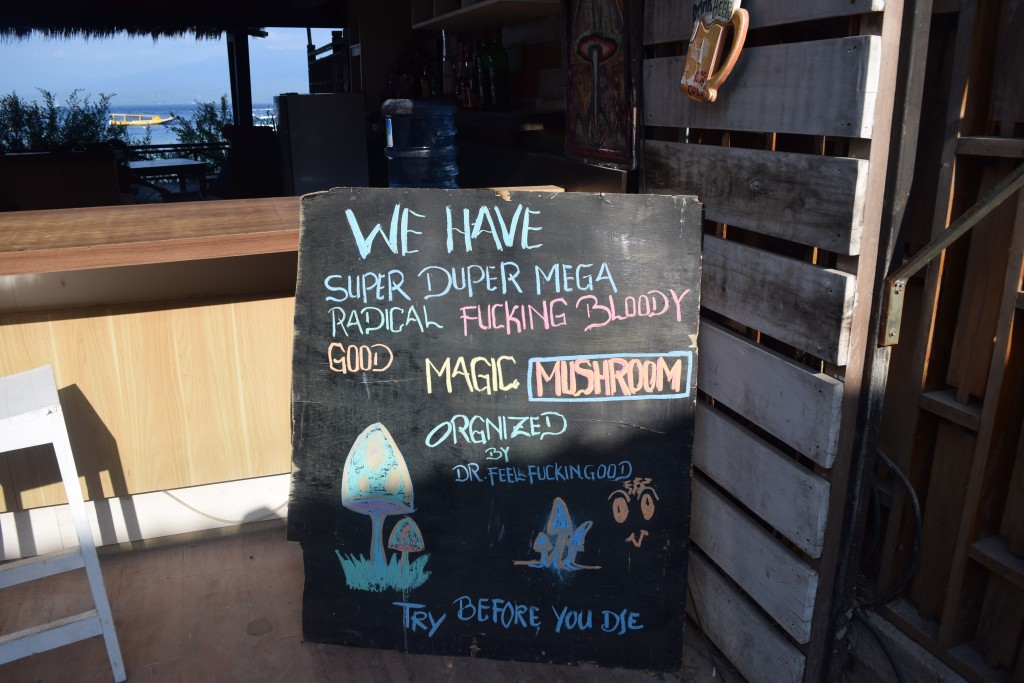 WE HAVE
SUPER DUPER MEGA
RADICAL FUCKING BLOODY
GOOD MAGIC MUSHROOM
ORGNIZED
BY
DR. FEELS FUCKIN GOOD
TRY BEFORE YOU DIE